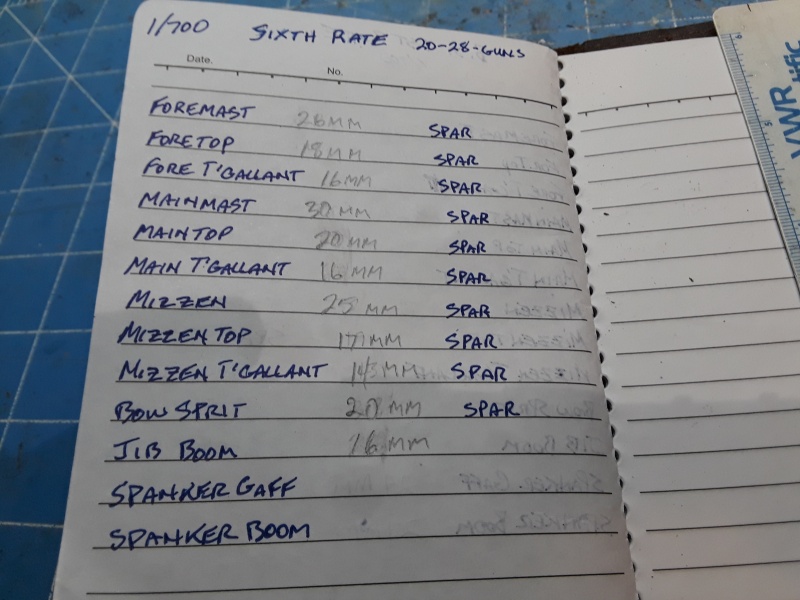 1/700 SIXTH RATE 20-28-GUNS
Date. No.
FOREMAST 26MM SPAR
FORETOP 18MM SPAR
FORE T'GALLANT 16MM SPAR
MAINMAST 30MM SPAR
MAINTOP 20MM SPAR
MAIN T'GALLANT 16MM SPAR
MIZZEN 25MM SPAR
MIZZEN TOP 17MM SPAR
MIZZEN T'GALLANT MM SPAR
BOW SPRIT MM SPAR
JIB BOOM 16MM
SPANKER GAFF
SPANKER BOOM
VWR